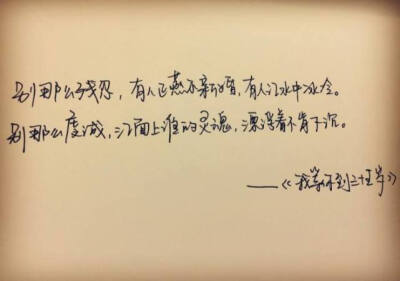 别那么残忍，有人正燕尔新婚，有人江水中冰冷。
别那么虔诚，江面上谁的灵魂，漂浮着不肯下沉。
——《我等不到二十五岁》